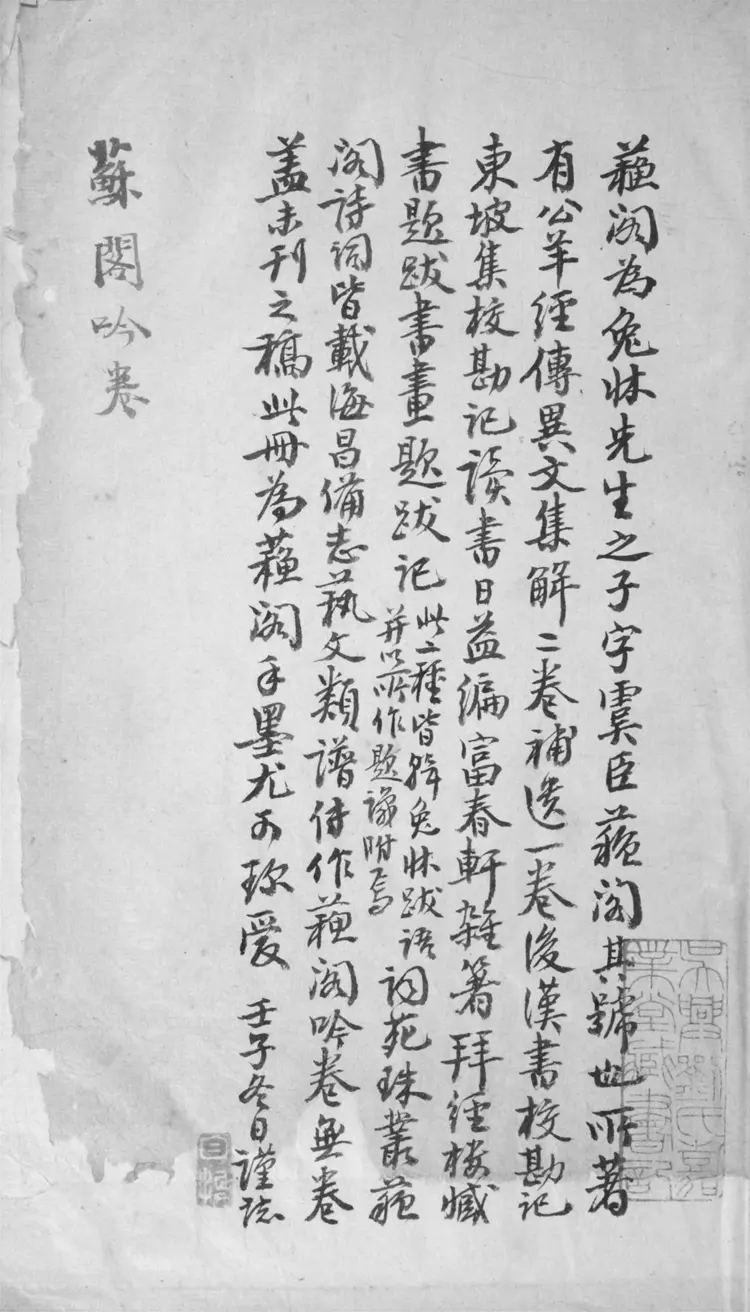 蘓阁為兔牀先生之子字虞臣蘓阁其號也所著
有公羊經傳異文集解二卷補遺一卷後漢書校勘記
東坡集校勘記讀書日益編富春軒雜著拜經樓藏
書題跋書畫題跋記
此二種皆輯兔牀跋語
并以所作題識附焉
詞苑珠叢蘓
阁詩詞皆載海昌備志藝文類譜傳作蘓阁吟卷無卷
盖未刊之稿此冊為蘓阁手墨尤可珎愛 壬子冬日謹誌
蘇閣吟卷
吳興劉氏嘉
業堂藏書記